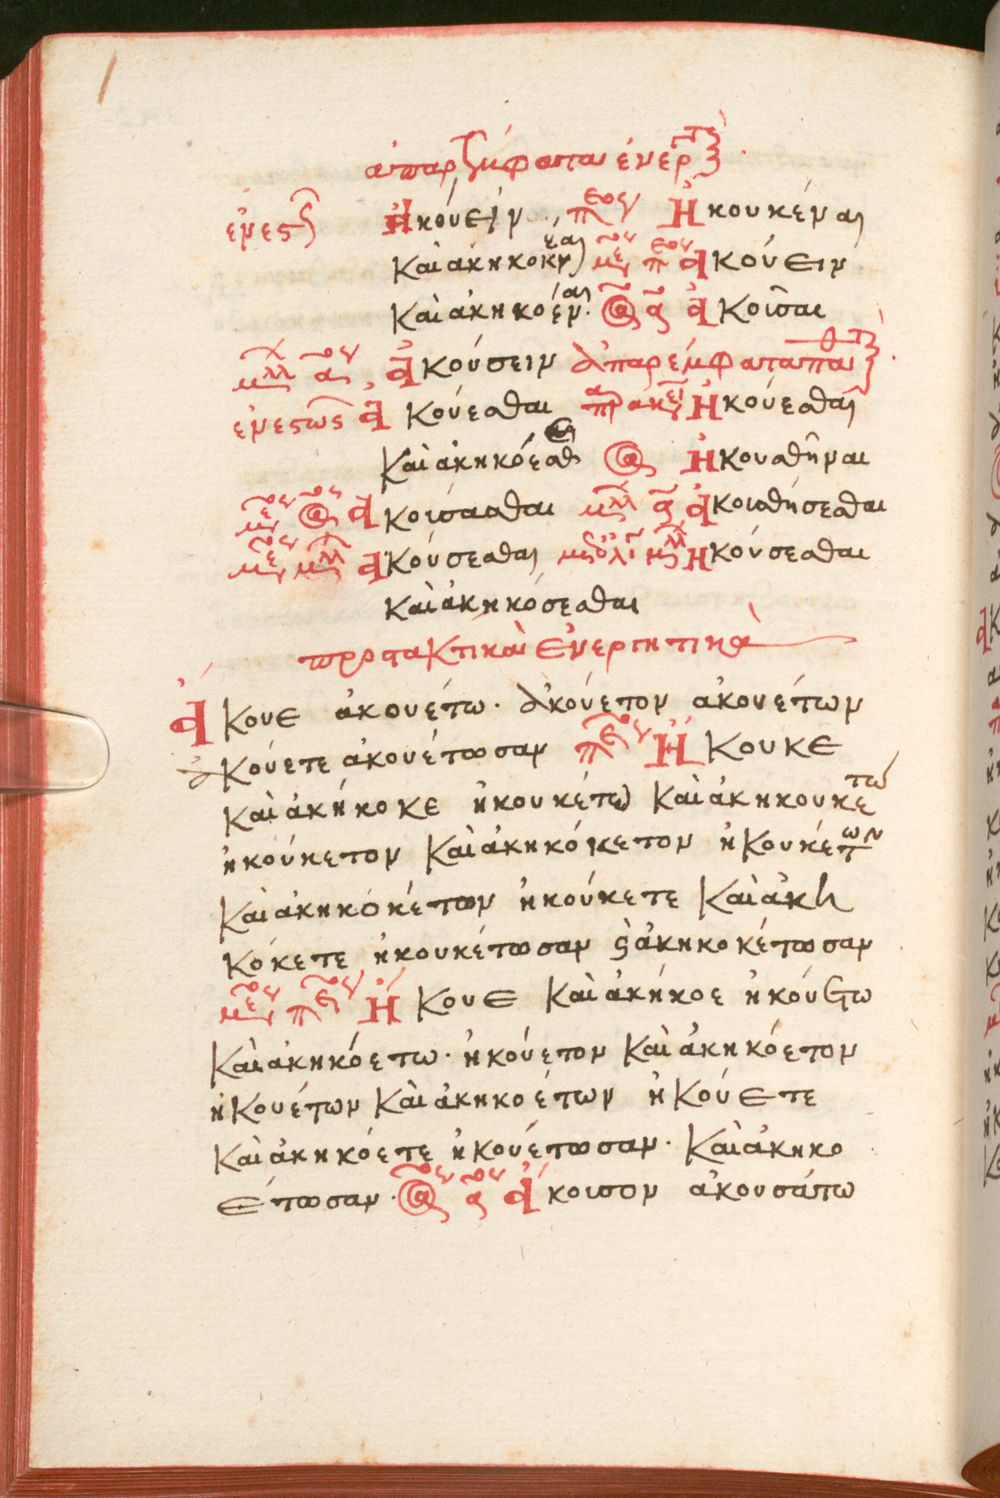 ἀπαρέμφατα ἐνεργ
ἐνεστ ἠκούειν πρκ Ἠκουκέναι
Καὶ ἀκηκοκέναι μέσ πρκ ἀκούειν
Καὶ ἀκηκοέναι ἀ ἀ ἀκοῦσαι
μλλ ἀ ἀκούσειν ἀπαρέμφατα παθ
ἐνεστῶς ἀκούεσθαι πρακει ἠκούεσθαι
Καὶ ἀκηκόεσθ ἀ ἠκουσθῆναι
μέσ ἀ ἀκούσασθαι μλλ ἀ ἀκουσθήσεσθαι
μέσ μλλ ἀκούσεσθαι μετ ὀλί μλλ ἠκούσεσθαι
Καὶ ἀκηκόσεσθαι
προστακτικὰ ἐνεργητικὰ
ἄκουε ἀκουέτω· ἀκούετον ἀκουέτων
ἀκούετε ἀκουέτωσαν πρκ Ἤκουκε
Καὶ ἀκήκοκε ἠκουκέτω Καὶ ἀκηκουκέτω
ἠκούκετον Καὶ ἀκηκόκετον ἠκουκέτων
Καὶ ἀκηκοκέτων ἠκούκετε Καὶ ἀκη
κόκετε ἠκουκέτωσαν ϗ ἀκηκοκέτωσαν
μέσ πρκ Ἤκουε Καὶ ἀκήκοε ἠκουέτω
Καὶ ἀκηκόετω· ἠκούετον Καὶ ἀκηκόετον
ἠκουέτων Καὶ ἀκηκοέτων ἠκούετε
Καὶ ἀκηκόετε ἠκουέτωσαν· Καὶ ἀκηκο
έτωσαν· ἀ ἀ ἄκουσον ἀκουσάτω